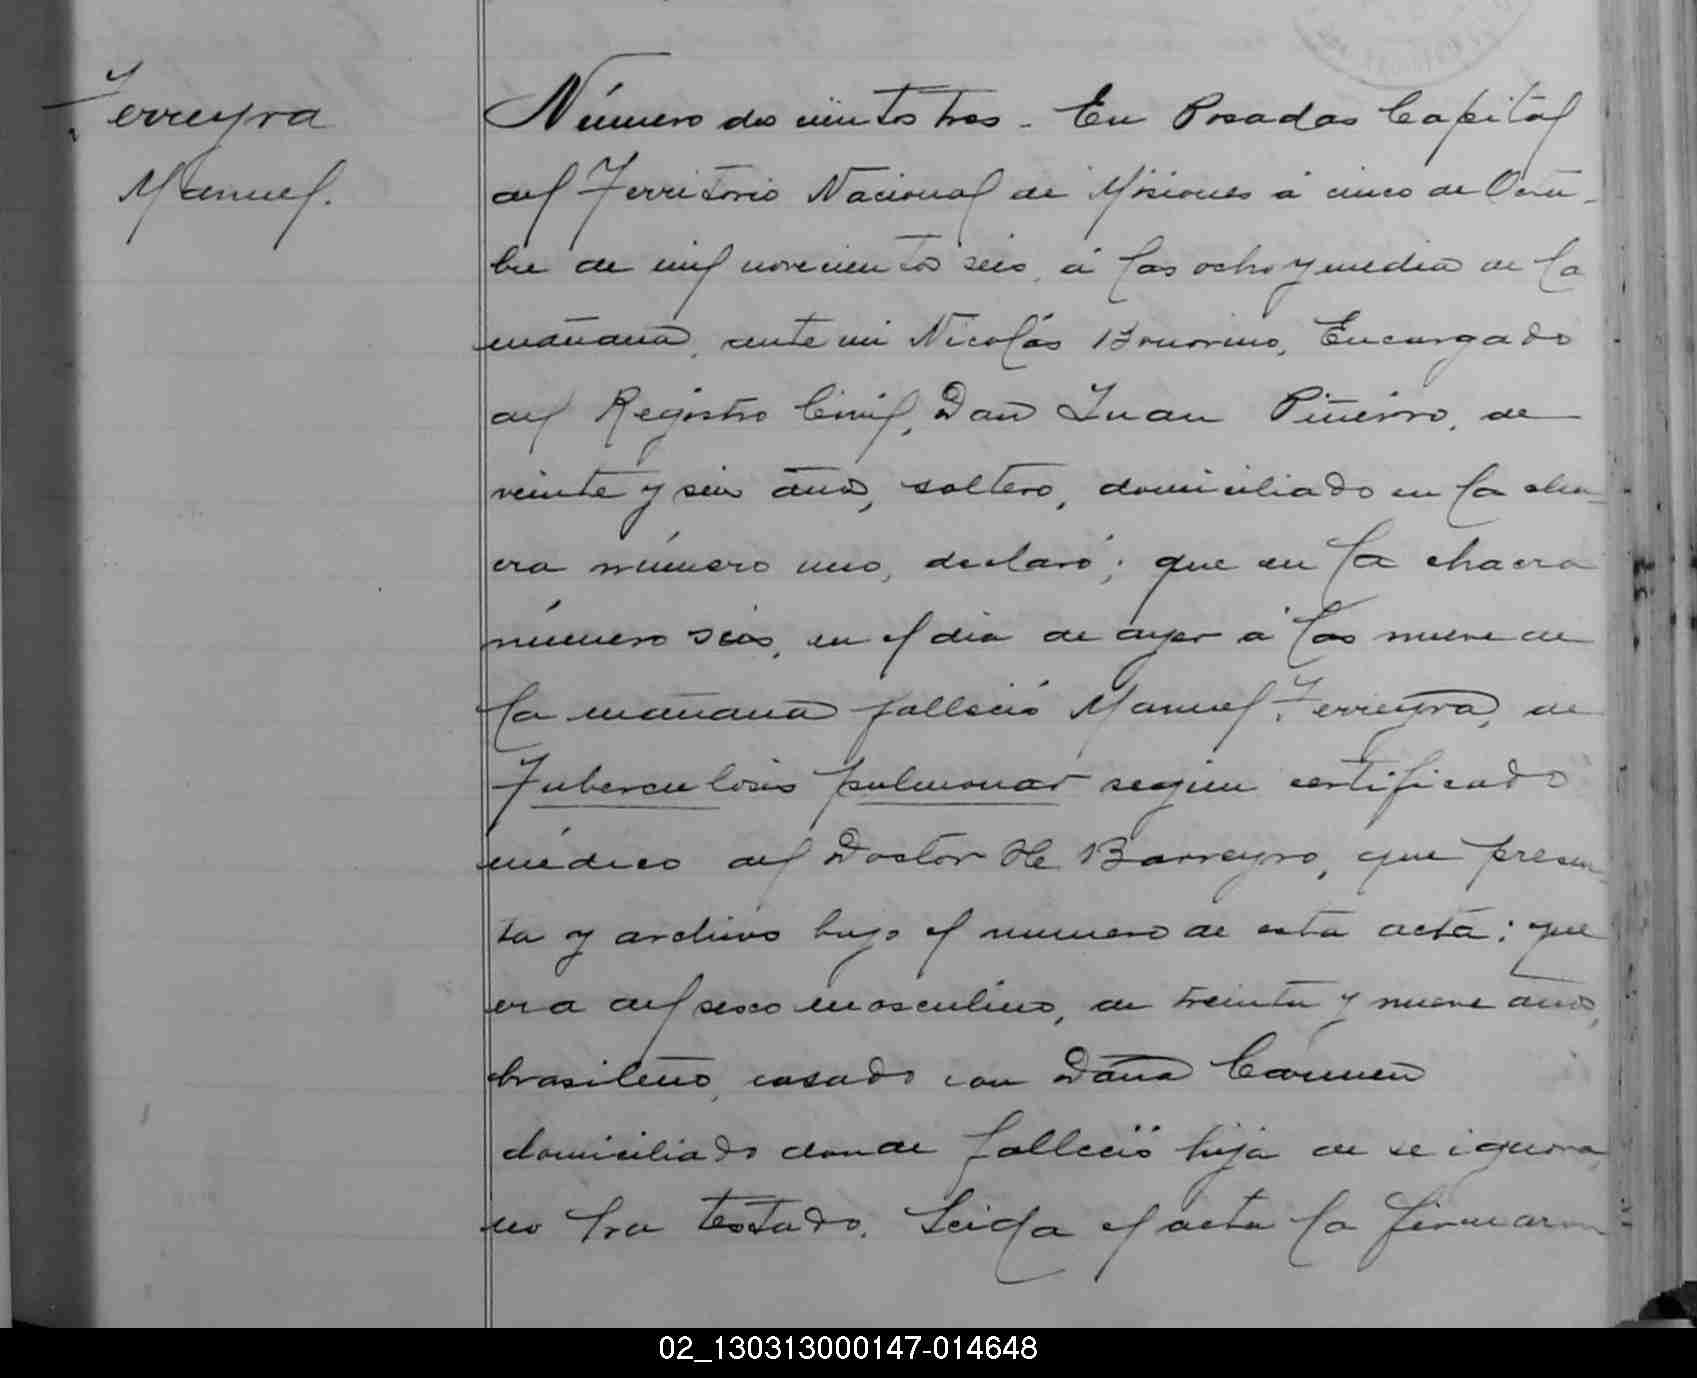 Ferreyra
Manuel.
Número doscientos tres - En Posadas Capital
del Territorio Nacional de Misiones á cinco de Octu-
bre de mil novecientos seis, á las ocho y media de la
mañana, ante mi Nicolás Bonorino, Encargado
del Registro Civil, Don Juan Piñeiro, de
veinte y seis años, soltero, domiciliado en la cha-
cra número uno, declaró; que en la chacra
número seis, en el dia de ayer á las nueve de
la mañana falleció Manuel Ferreyra, de
Tuberculosis pulmonar segun certificado
médico del Doctor H Barreyro, que presen-
ta y archivo bajo el numero de esta acta; que
era del sexo masculino, de treinta y nueve años,
brasileño, casado con Doña Carmen
domiciliado donde falleció hijo de se ignora,
no ha testado. Leida el acta la firmaron
02_130313000147-014648